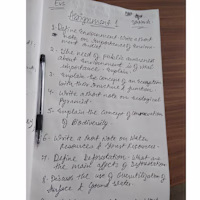 Evs
Assignment 1
1. Define Environment. Write a short
note on importance of Environ-
ment
2. The need of public awareness
about environment & its
importance. Explain
3. Explain the concept of an ecosystem
with its structure & function
4. Write a short note on ecological
Pyramids
5. Explain the concept of conservation
of Biodiversity
6. Write a short note on Water
resources & Forest Resources.
7. Define Deforestation. What are
the effects of Deforestation
8. Discuss the use & overutilization of
surface & ground water